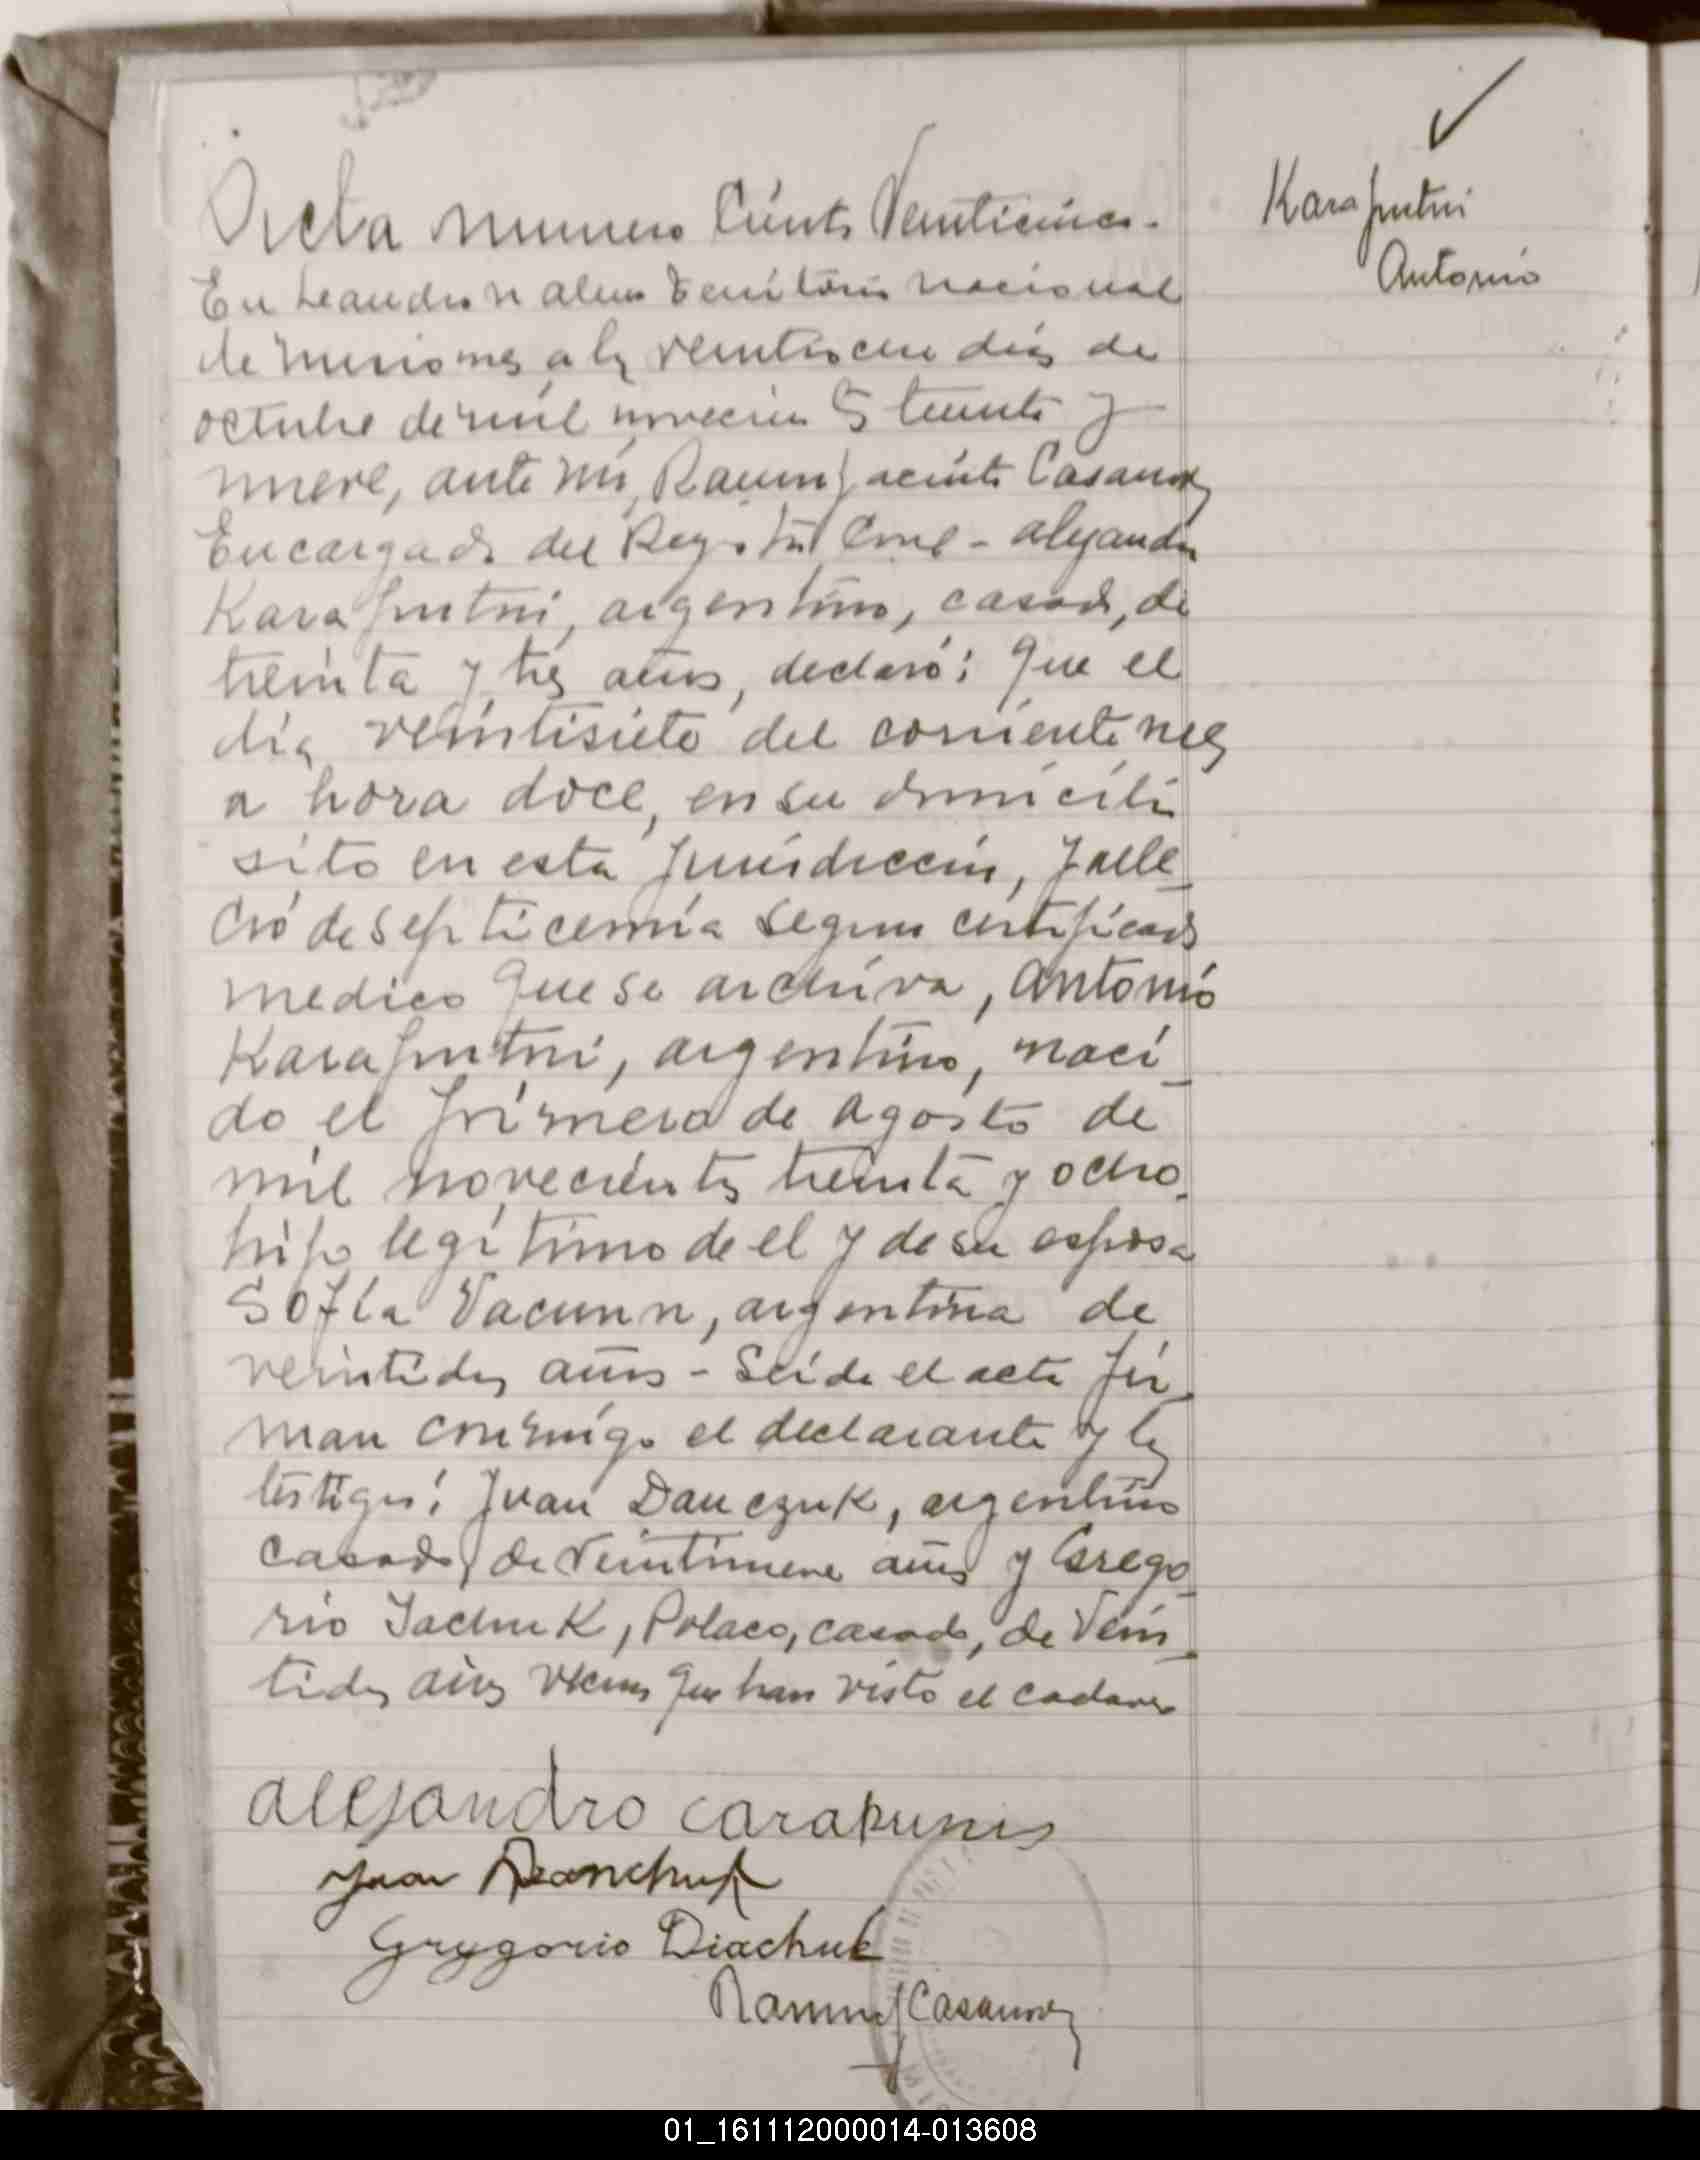 Karaputni
Antonio
Acta numero Ciento Veinticinco.
En Leandro N alem Territorio nacional
de misiones a los veintiocho dias de
octubre de mil novecientos treinta y
nueve, ante mi, Ramon Jacinto Casanova
Encargado del Registro Civil - alejandro
Karaputni, argentino, casado, de
treinta y tres años, declaró: Que el
dia veintisiete del corriente mes
a hora doce, en su domicilio
sito en esta jurisdiccion, falle_
ció de septicemia segun certificado
medico que se archiva, Antonio
Karaputni, argentino, naci_
do el primero de agosto de
mil novecientos treinta y ocho,
hijo legitimo de el y de su esposa
Sofia Vacunn, argentina de
veintidos años - Leida el acta fir_
man conmigo el declarante y los
testigos: Juan Danczuk, argentino
casado, de veintinueve años y Grego_
rio Iachuk, Polaco, casado, de Vein_
tidos años vecinos que han visto el cadaver
alejandro carapunis
Juan Danchuk
Grygorio Diachuk
Ramon J Casanova
01_161112000014-013608